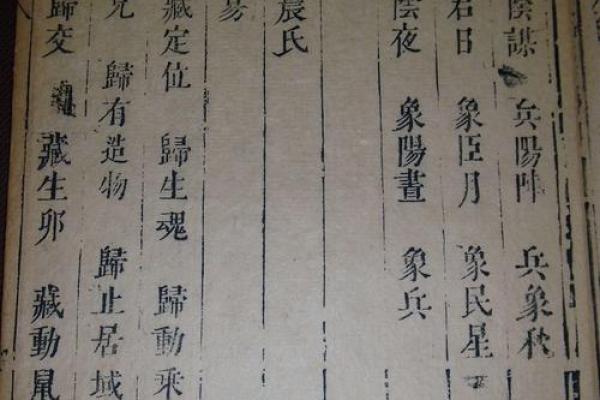 陰謀 兵陽陣 兵象秋
君日 象臣月 象民星
陰夜 象陽晝 象兵
農氏
易
藏定位 歸生魂 歸動乘
歸有造物 歸止居域
歸交 藏生卯 藏動鼠